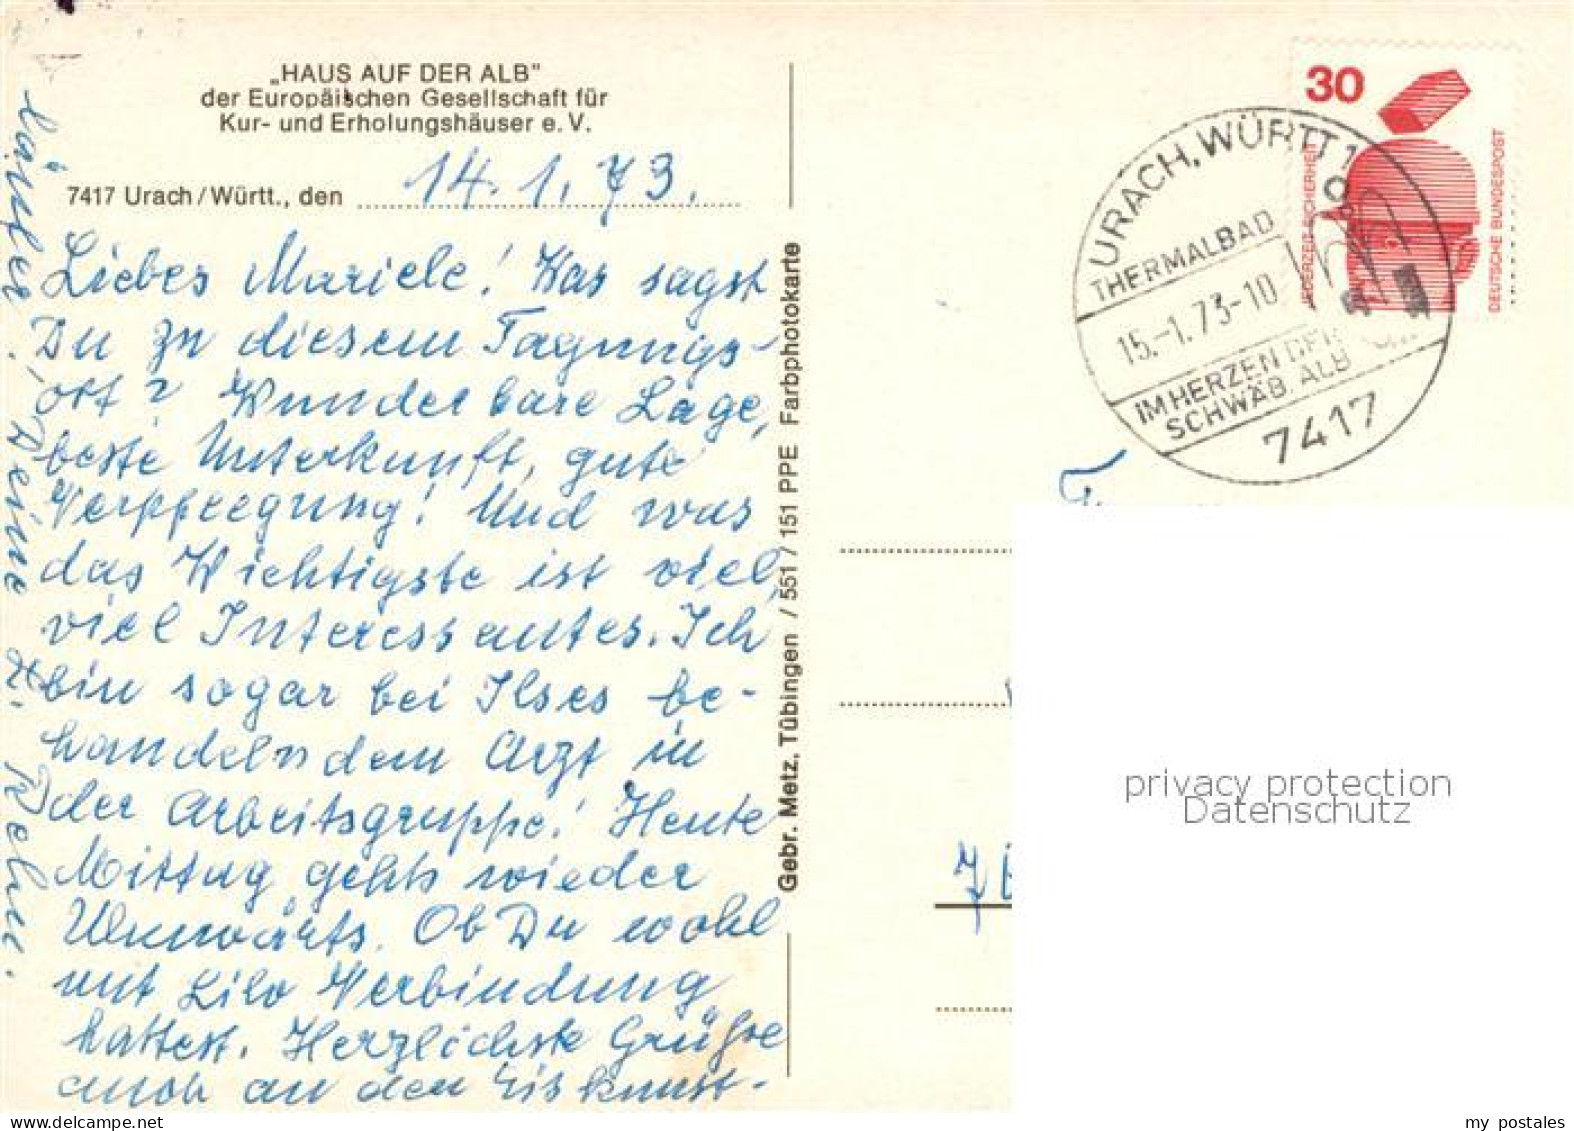 „HAUS AUF DER ALB"
der Europäischen Gesellschaft für
Kur- und Erholungshäuser e. V.
7417 Urach / Württ., den 14. 1. 73.
Liebes Mariele! Was sagst
Du zu diesem Tagungs-
ort? Wunderbare Lage,
beste Unterkunft, gute
Verpflegung! Und was
das Wichtigste ist viel,
viel Interessantes. Ich
bin sogar bei Ilses be-
handelndem Arzt in
der Arbeitsgruppe! Heute
Mittag gehts wieder
Ulmwärts. Ob Du wohl
mit Lilo Verbindung
hattest. Herzlichste Grüße
auch an den Eiskunst-
läufer, Deine
Gebr. Metz, Tübingen / 551 / 151 PPE Farbphotokarte
30
JEDERZEIT SICHERHEIT
DEUTSCHE BUNDESPOST
URACH, WÜRTT 1
THERMALBAD
15.-1.73-10
IM HERZEN DER
SCHWÄB. ALB
7417
privacy protection
Datenschutz
my postales